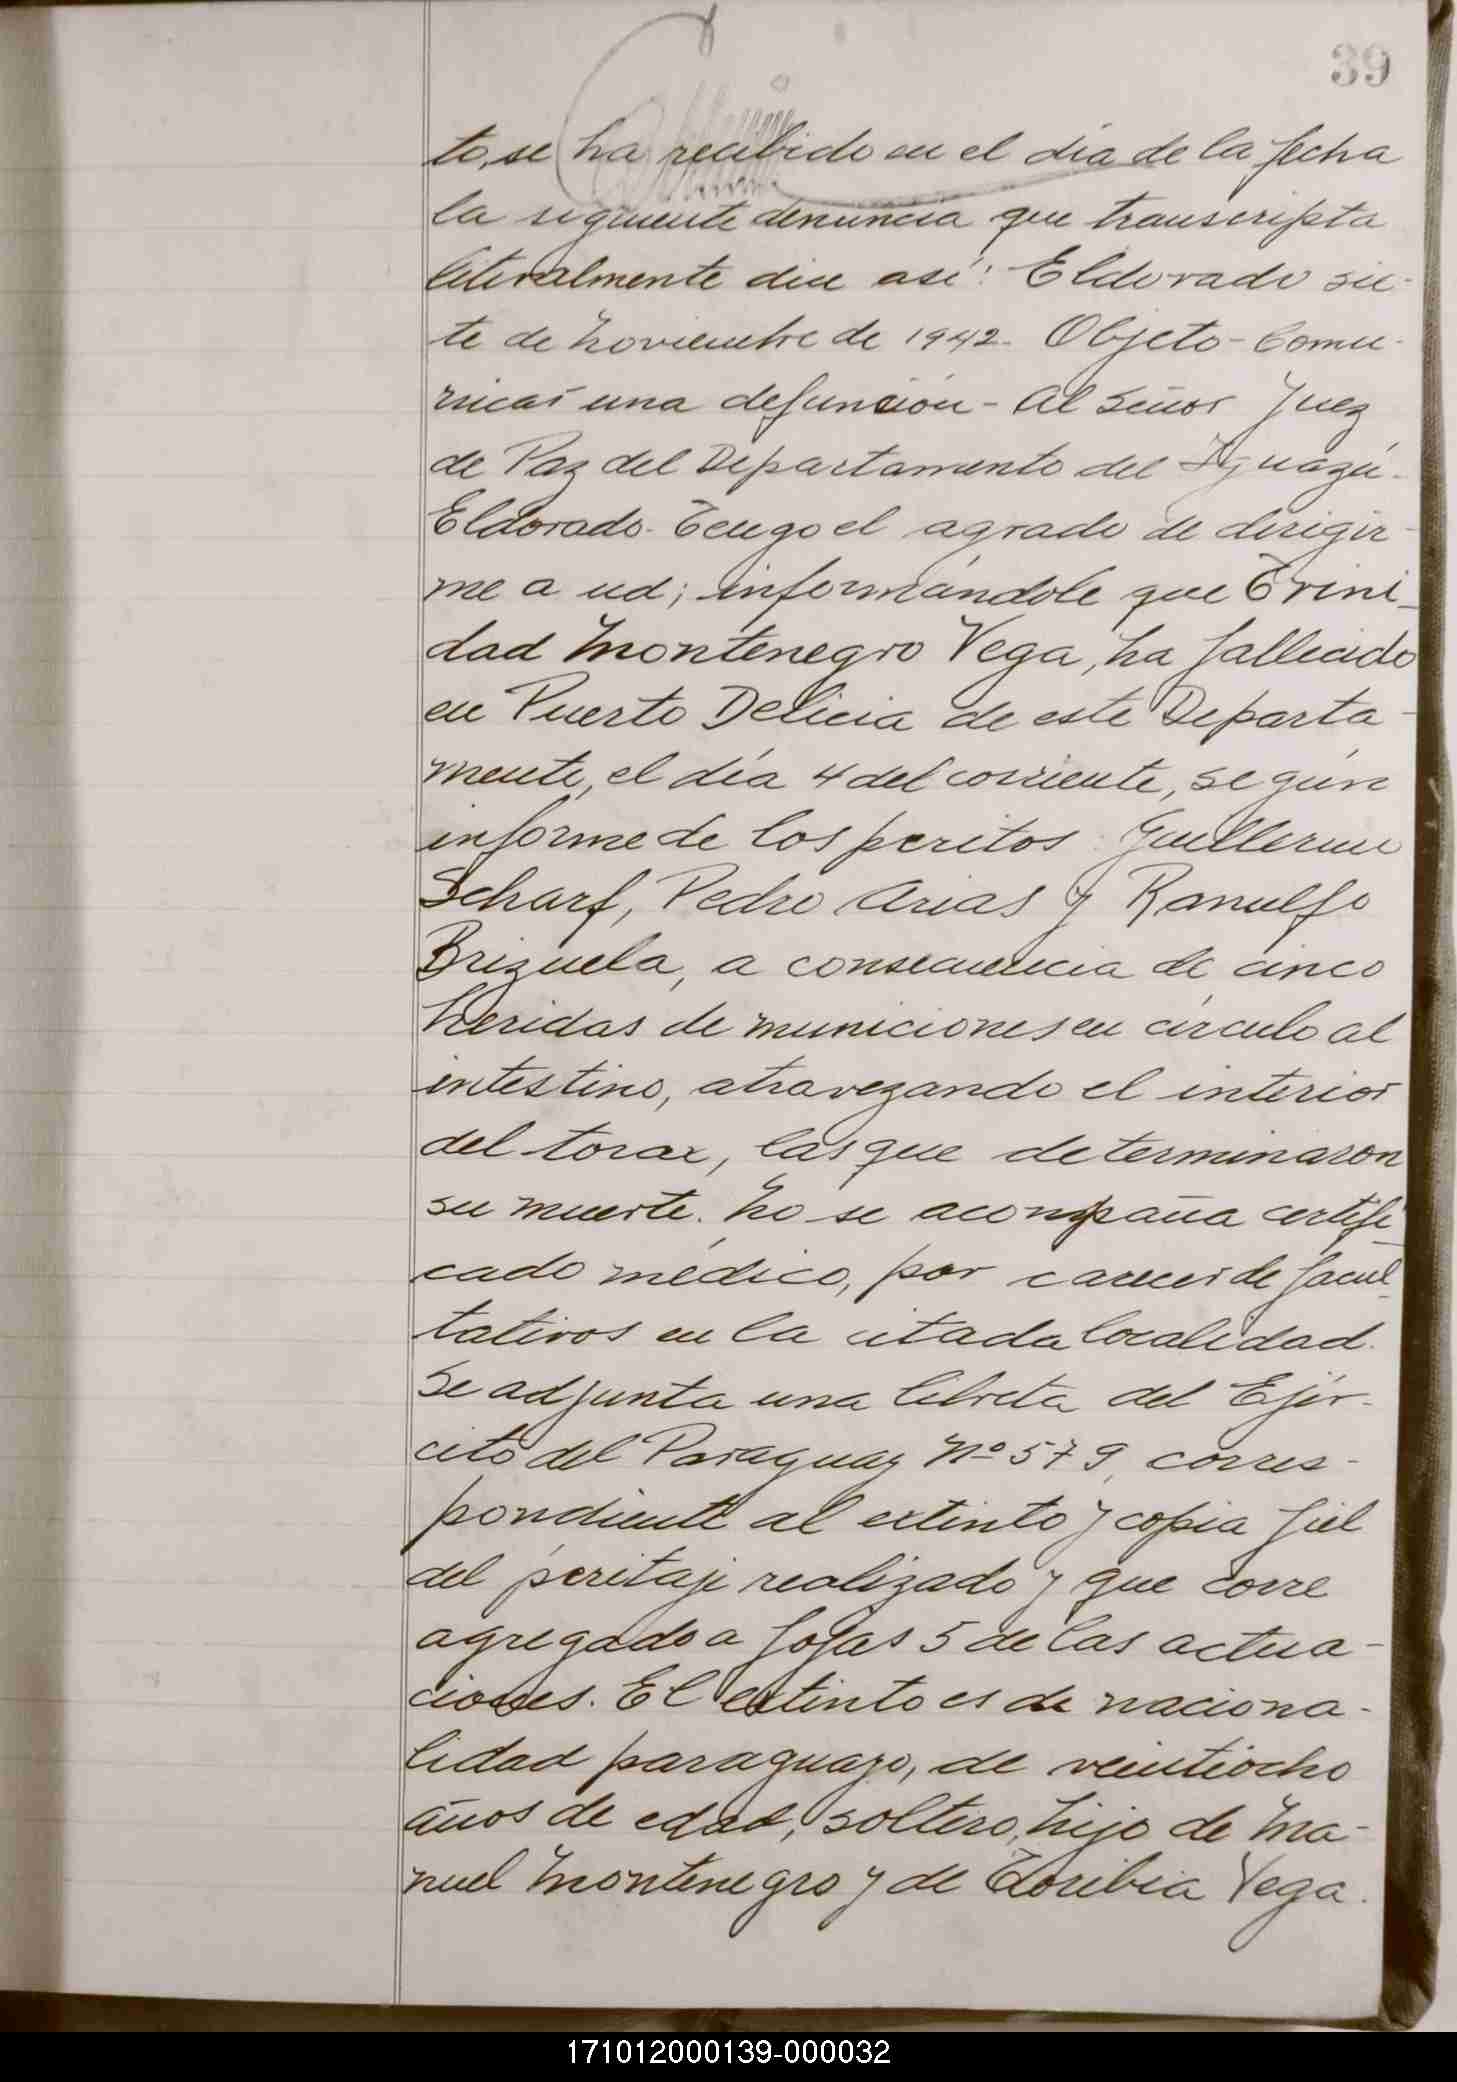 39
to, se ha recibido en el día de la fecha
la siguiente denuncia que transcripta
literalmente dice así: Eldorado sie-
te de Noviembre de 1942. Objeto - Comu-
nicar una defunción - Al Señor Juez
de Paz del Departamento del Iguazú.
Eldorado. Tengo el agrado de dirigir-
me a ud; informándole que Trini-
dad Montenegro Vega, ha fallecido
en Puerto Delicia de este Departa-
mento, el día 4 del corriente, según
informe de los peritos: Guillermo
Scharf, Pedro Arias y Ranulfo
Brizuela, a consecuencia de cinco
heridas de municiones en círculo al
intestino, atravezando el interior
del torax, las que determinaron
su muerte. No se acompaña certifi-
cado médico, por carecer de facul-
tativos en la citada localidad.
Se adjunta una libreta del Ejér-
cito del Paraguay Nº 579, corres-
pondiente al extinto y copia fiel
del peritaje realizado y que corre
agregado a fojas 5 de las actua-
ciones. El extinto es de naciona-
lidad paraguayo, de veintiocho
años de edad, soltero, hijo de Ma-
nuel Montenegro y de Toribia Vega.
171012000139-000032